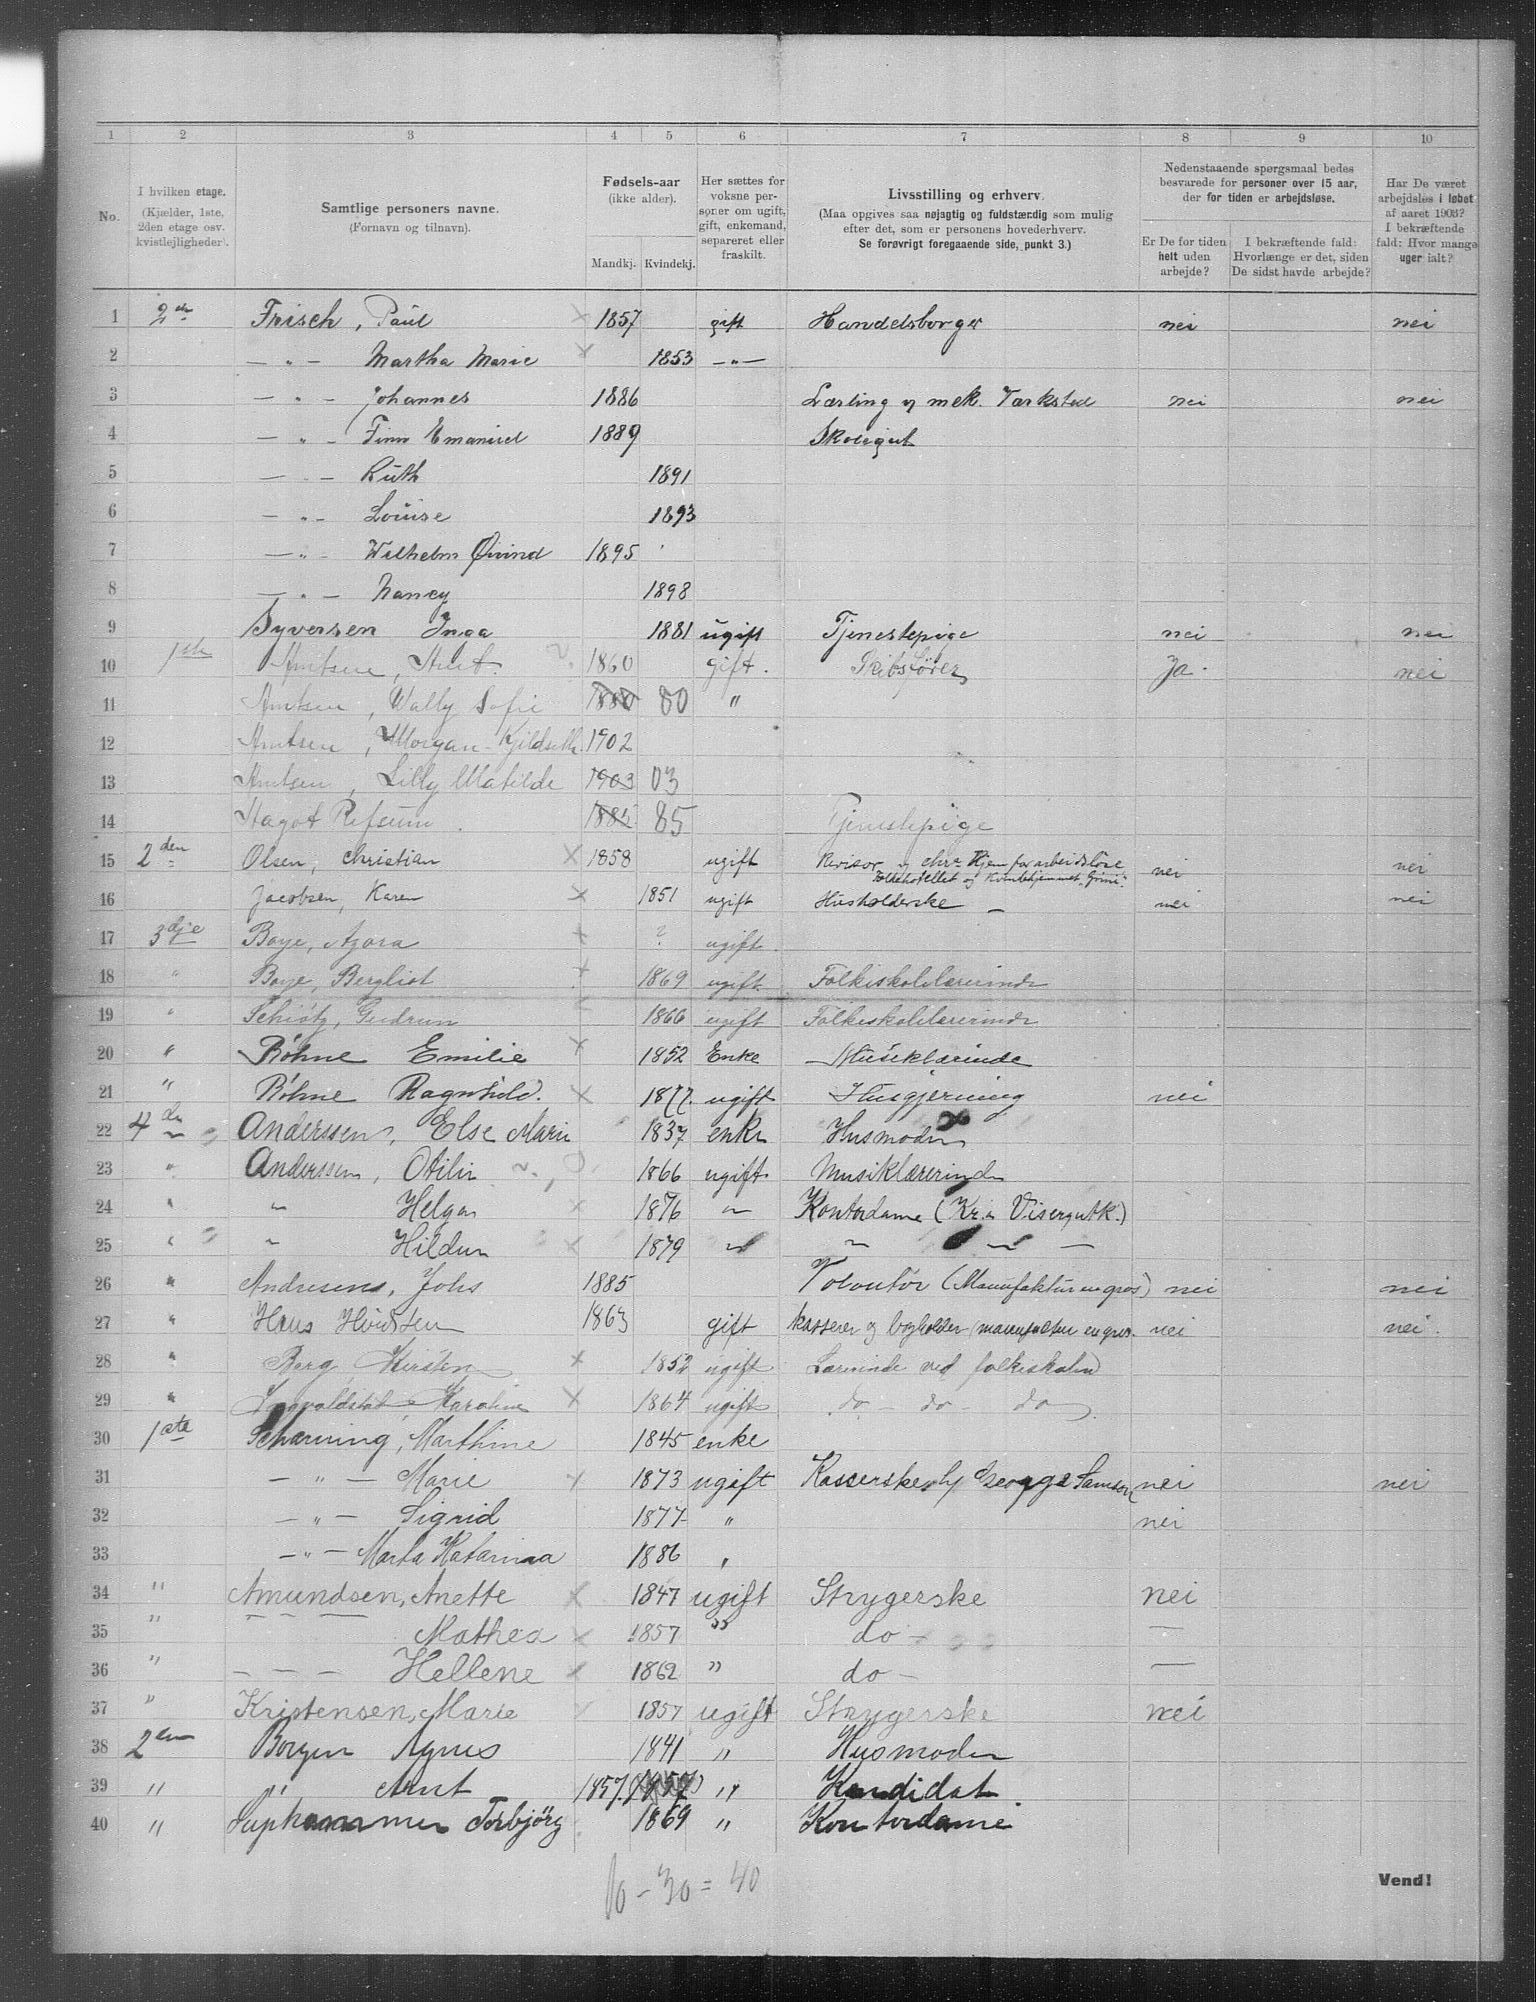 1 2 3 4 5 6 7 8 9 10
No.
I hvilken etage.
(Kjælder, 1ste,
2den etage osv.
kvistlejligheder).
Samtlige personers navne.
(Fornavn og tilnavn).
Fødsels-aar
(ikke alder).
Mandkj. Kvindekj.
Her sættes for
voksne per-
soner om ugift,
gift, enkemand,
separeret eller
fraskilt.
Livsstilling og erhverv.
(Maa opgives saa nøjagtig og fuldstændig som mulig
efter det, som er personens hovederhverv.
Se forøvrigt foregaaende side, punkt 3.)
Nedenstaaende spørgsmaal bedes
besvarede for personer over 15 aar,
der for tiden er arbejdsløse.
Er De for tiden
helt uden
arbejde?
I bekræftende fald:
Hvorlænge er det, siden
De sidst havde arbejde?
Har De været
arbejdsløs i løbet
af aaret 1903?
I bekræftende
fald: Hvor mange
uger ialt?
1 2den Frisch, Paul 1857 gift Handelsborger nei nei
2 — " — Martha Marie 1853 — " —
3 — " — Johannes 1886 Lærling v mek. Værksted nei nei
4 — " — Finn Emanuel 1889 Skolegut
5 — " — Ruth 1891
6 — " — Louise 1893
7 — " — Wilhelm Øivind 1895
8 — " — Nancy 1898
9 Syversen Inga 1881 ugift Tjenestepige nei nei
10 1ste Arntsen, Arnt. 1860 gift. Skibsfører Ja. nei
11 Arntsen, Wally Sofie 1880 80 "
12 Arntsen, Morgan 1902
13 Arntsen, Lilly Matilde 1903 03
14 Hagot Refsum 1885 85 Tjenestepige
15 2den Olsen, Christian 1858 ugift Revisor v Chra Hjem for arbeidsløse nei nei
Folkehotellet og Kvindehjemmet "Grini".
16 Jacobsen, Karen 1851 ugift Husholderske — nei nei
17 3dje Boye, Azora ? ugift.
18 " Boye, Bergliot 1869 ugift Folkeskolelærerinde
19 " Schiøtz, Gudrun 1866 ugift Folkeskolelærerinde
20 " Bøhne Emilie 1852 Enke Musiklærinde
21 " Bøhne Ragnhild. 1877. ugift Husgjerning nei
22 4de Anderssen, Else Marie 1837 enke Husmoder
23 " Anderssen, Otilie 1866 ugift. Musiklærerinde
24 " " Helga 1876 " Kontordame (Kr.a Visergutk.)
25 " " Hildur 1879 " " " —
26 " Andresen, Johs 1885 Volontør (Manufaktur engros) nei nei
27 " Hans Hvidsten 1863 gift kasserer og bogholder (manufaktur engros. nei nei.
28 " Berg, Kirsten 1852 ugift Lærerinde ved folkeskolen
29 " Karoline 1864 ugift do — do — do
30 1ste Scharning, Marthine 1845 enke
31 — " — Marie 1873 ugift Kasserske h/ George Samson nei nei
32 — " — Sigrid 1877 " nei
33 — " — Marta Katarina 1886 "
34 " Amundsen, Anette 1847 ugift Strygerske nei
35 " — — — Mathea 1857 " do — —
36 " — — — Hellene 1862 " do — —
37 " Kristensen, Marie 1857 ugift Strygerske nei
38 2en Borgen Agnes 1841 " Husmoder
39 " " Arnt 1857. (1857) " Kandidat
40 " Torbjørg 1869 " Kontordame
10 - 30 = 40
Vend!